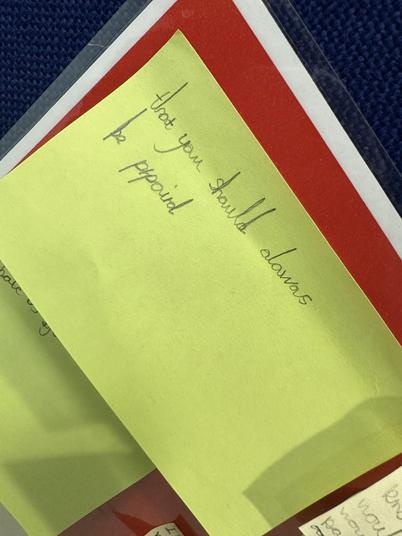 that you should alawas
be prpaird